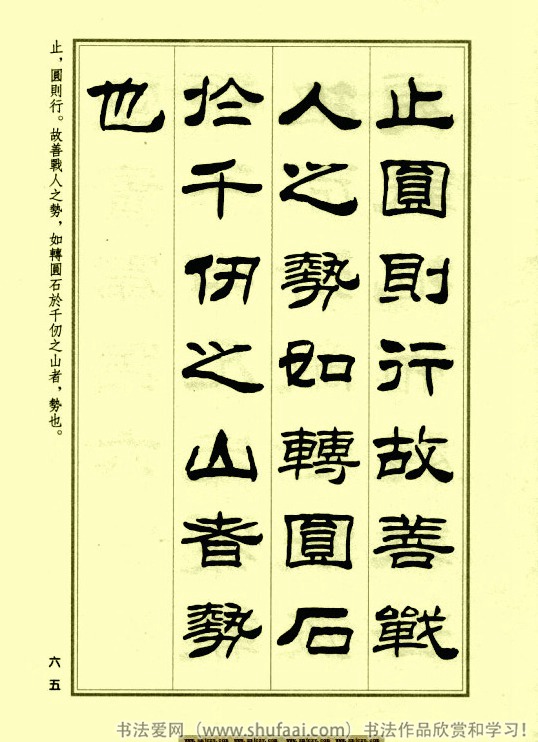 止圓則行故善戰
人之勢如轉圓石
於千仞之山者勢
也
止，圓則行。故善戰人之勢，如轉圓石於千仞之山者，勢也。
六五
书法爱网（www.shufaai.com）书法作品欣赏和学习！